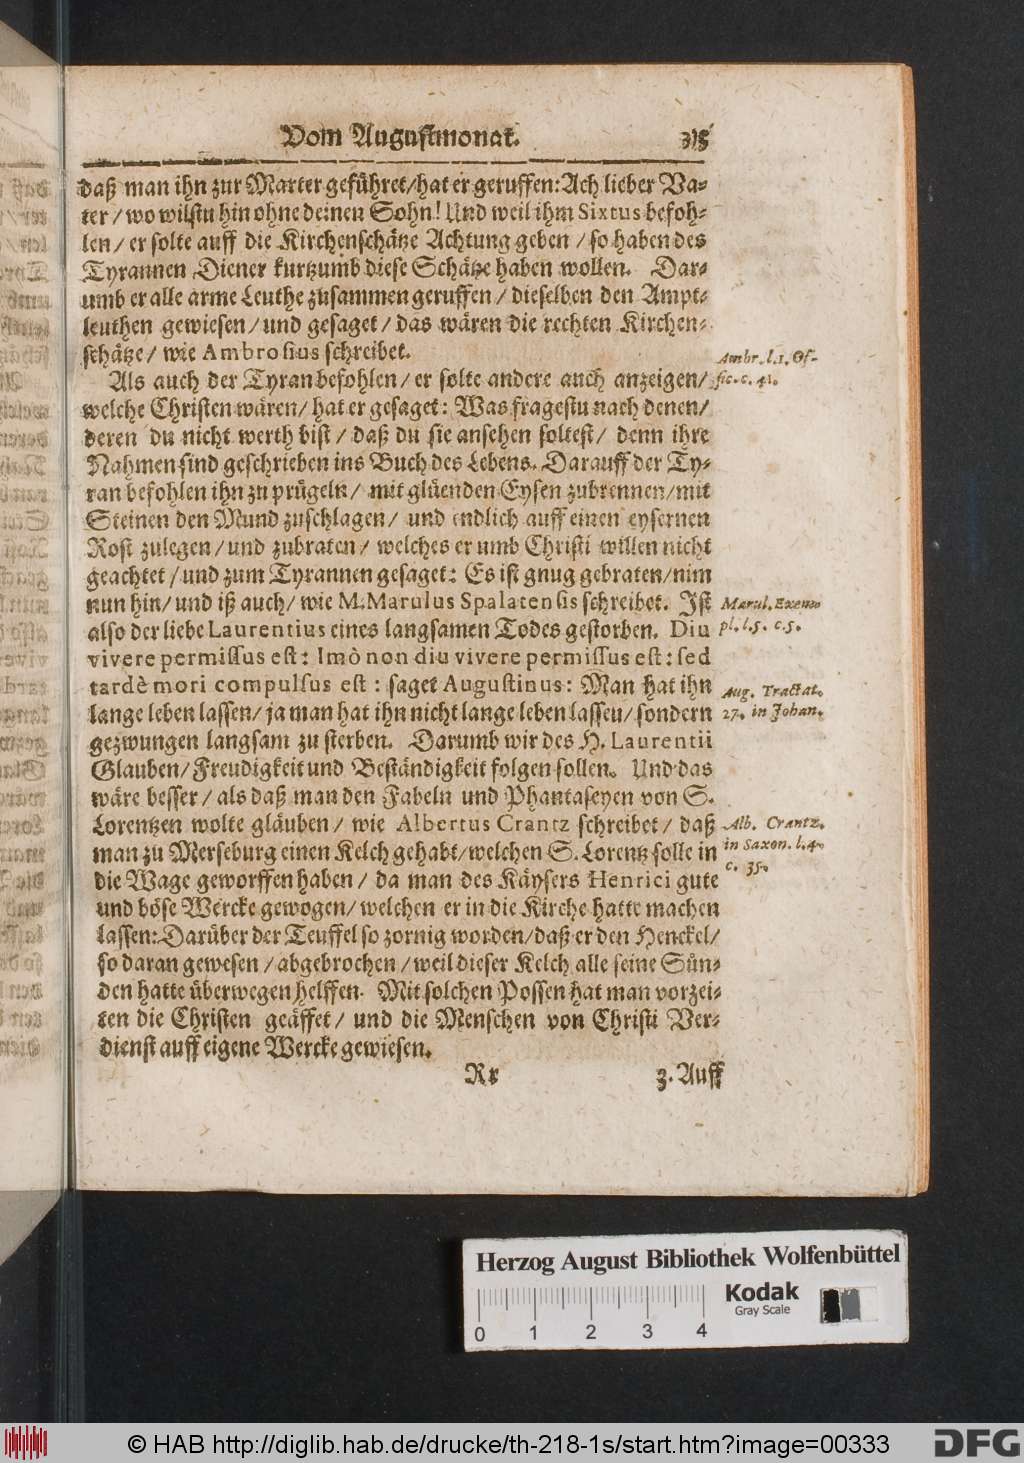 Vom Augustmonat. 315
daß man ihn zur Marter geführet/hat er geruffen: Ach lieber Va-
ter / wo wilstu hin ohne deinen Sohn! Und weil ihm Sixtus befoh-
len / er solte auff die Kirchenschätze Achtung geben / so haben des
Tyrannen Diener kurtzumb diese Schätze haben wollen. Dar-
umb er alle arme Leuthe zusammen geruffen / dieselben den Ampt-
leuthen gewiesen / und gesaget / das wären die rechten Kirchen-
schätze / wie Ambrosius schreibet.
Ambr. l. 1. Of-
fic. c. 41.
Als auch der Tyran befohlen / er solte andere auch anzeigen/
welche Christen wären / hat er gesaget: Was fragestu nach denen/
deren du nicht werth bist / daß du sie ansehen soltest / denn ihre
Nahmen sind geschrieben ins Buch des Lebens. Darauff der Ty-
ran befohlen ihn zu prügeln / mit glüenden Eysen zubrennen/mit
Steinen den Mund zuschlagen / und endlich auff einen eysernen
Rost zulegen / und zubraten / welches er umb Christi willen nicht
geachtet / und zum Tyrannen gesaget: Es ist gnug gebraten/nim
nun hin / und iß auch / wie M. Marulus Spalatensis schreibet. Ist
Marul. Exem-
pl. l. 5. c. 5.
also der liebe Laurentius eines langsamen Todes gestorben. Diu
vivere permissus est: Imò non diu vivere permissus est: sed
tardè mori compulsus est: saget Augustinus: Man hat ihn
Aug. Tractat.
27. in Johan.
lange leben lassen / ja man hat ihn nicht lange leben lassen / sondern
gezwungen langsam zu sterben. Darumb wir des H. Laurentii
Glauben / Freudigkeit und Beständigkeit folgen sollen. Und das
wäre besser / als daß man den Fabeln und Phantaseyen von S.
Lorentzen wolte gläuben / wie Albertus Crantz schreibet / daß
Alb. Crantz.
in Saxon. l. 4.
c. 35.
man zu Merseburg einen Kelch gehabt/welchen S. Lorentz solle in
die Wage geworffen haben / da man des Käysers Henrici gute
und böse Wercke gewogen / welchen er in die Kirche hatte machen
lassen: Darüber der Teuffel so zornig worden/daß er den Henckel/
so daran gewesen / abgebrochen / weil dieser Kelch alle seine Sün-
den hatte überwegen helffen. Mit solchen Possen hat man vorzei-
ten die Christen geäffet / und die Menschen von Christi Ver-
dienst auff eigene Wercke gewiesen.
Rr 3. Auff
Herzog August Bibliothek Wolfenbüttel
Kodak
Gray Scale
0 1 2 3 4
© HAB http://diglib.hab.de/drucke/th-218-1s/start.htm?image=00333
DFG